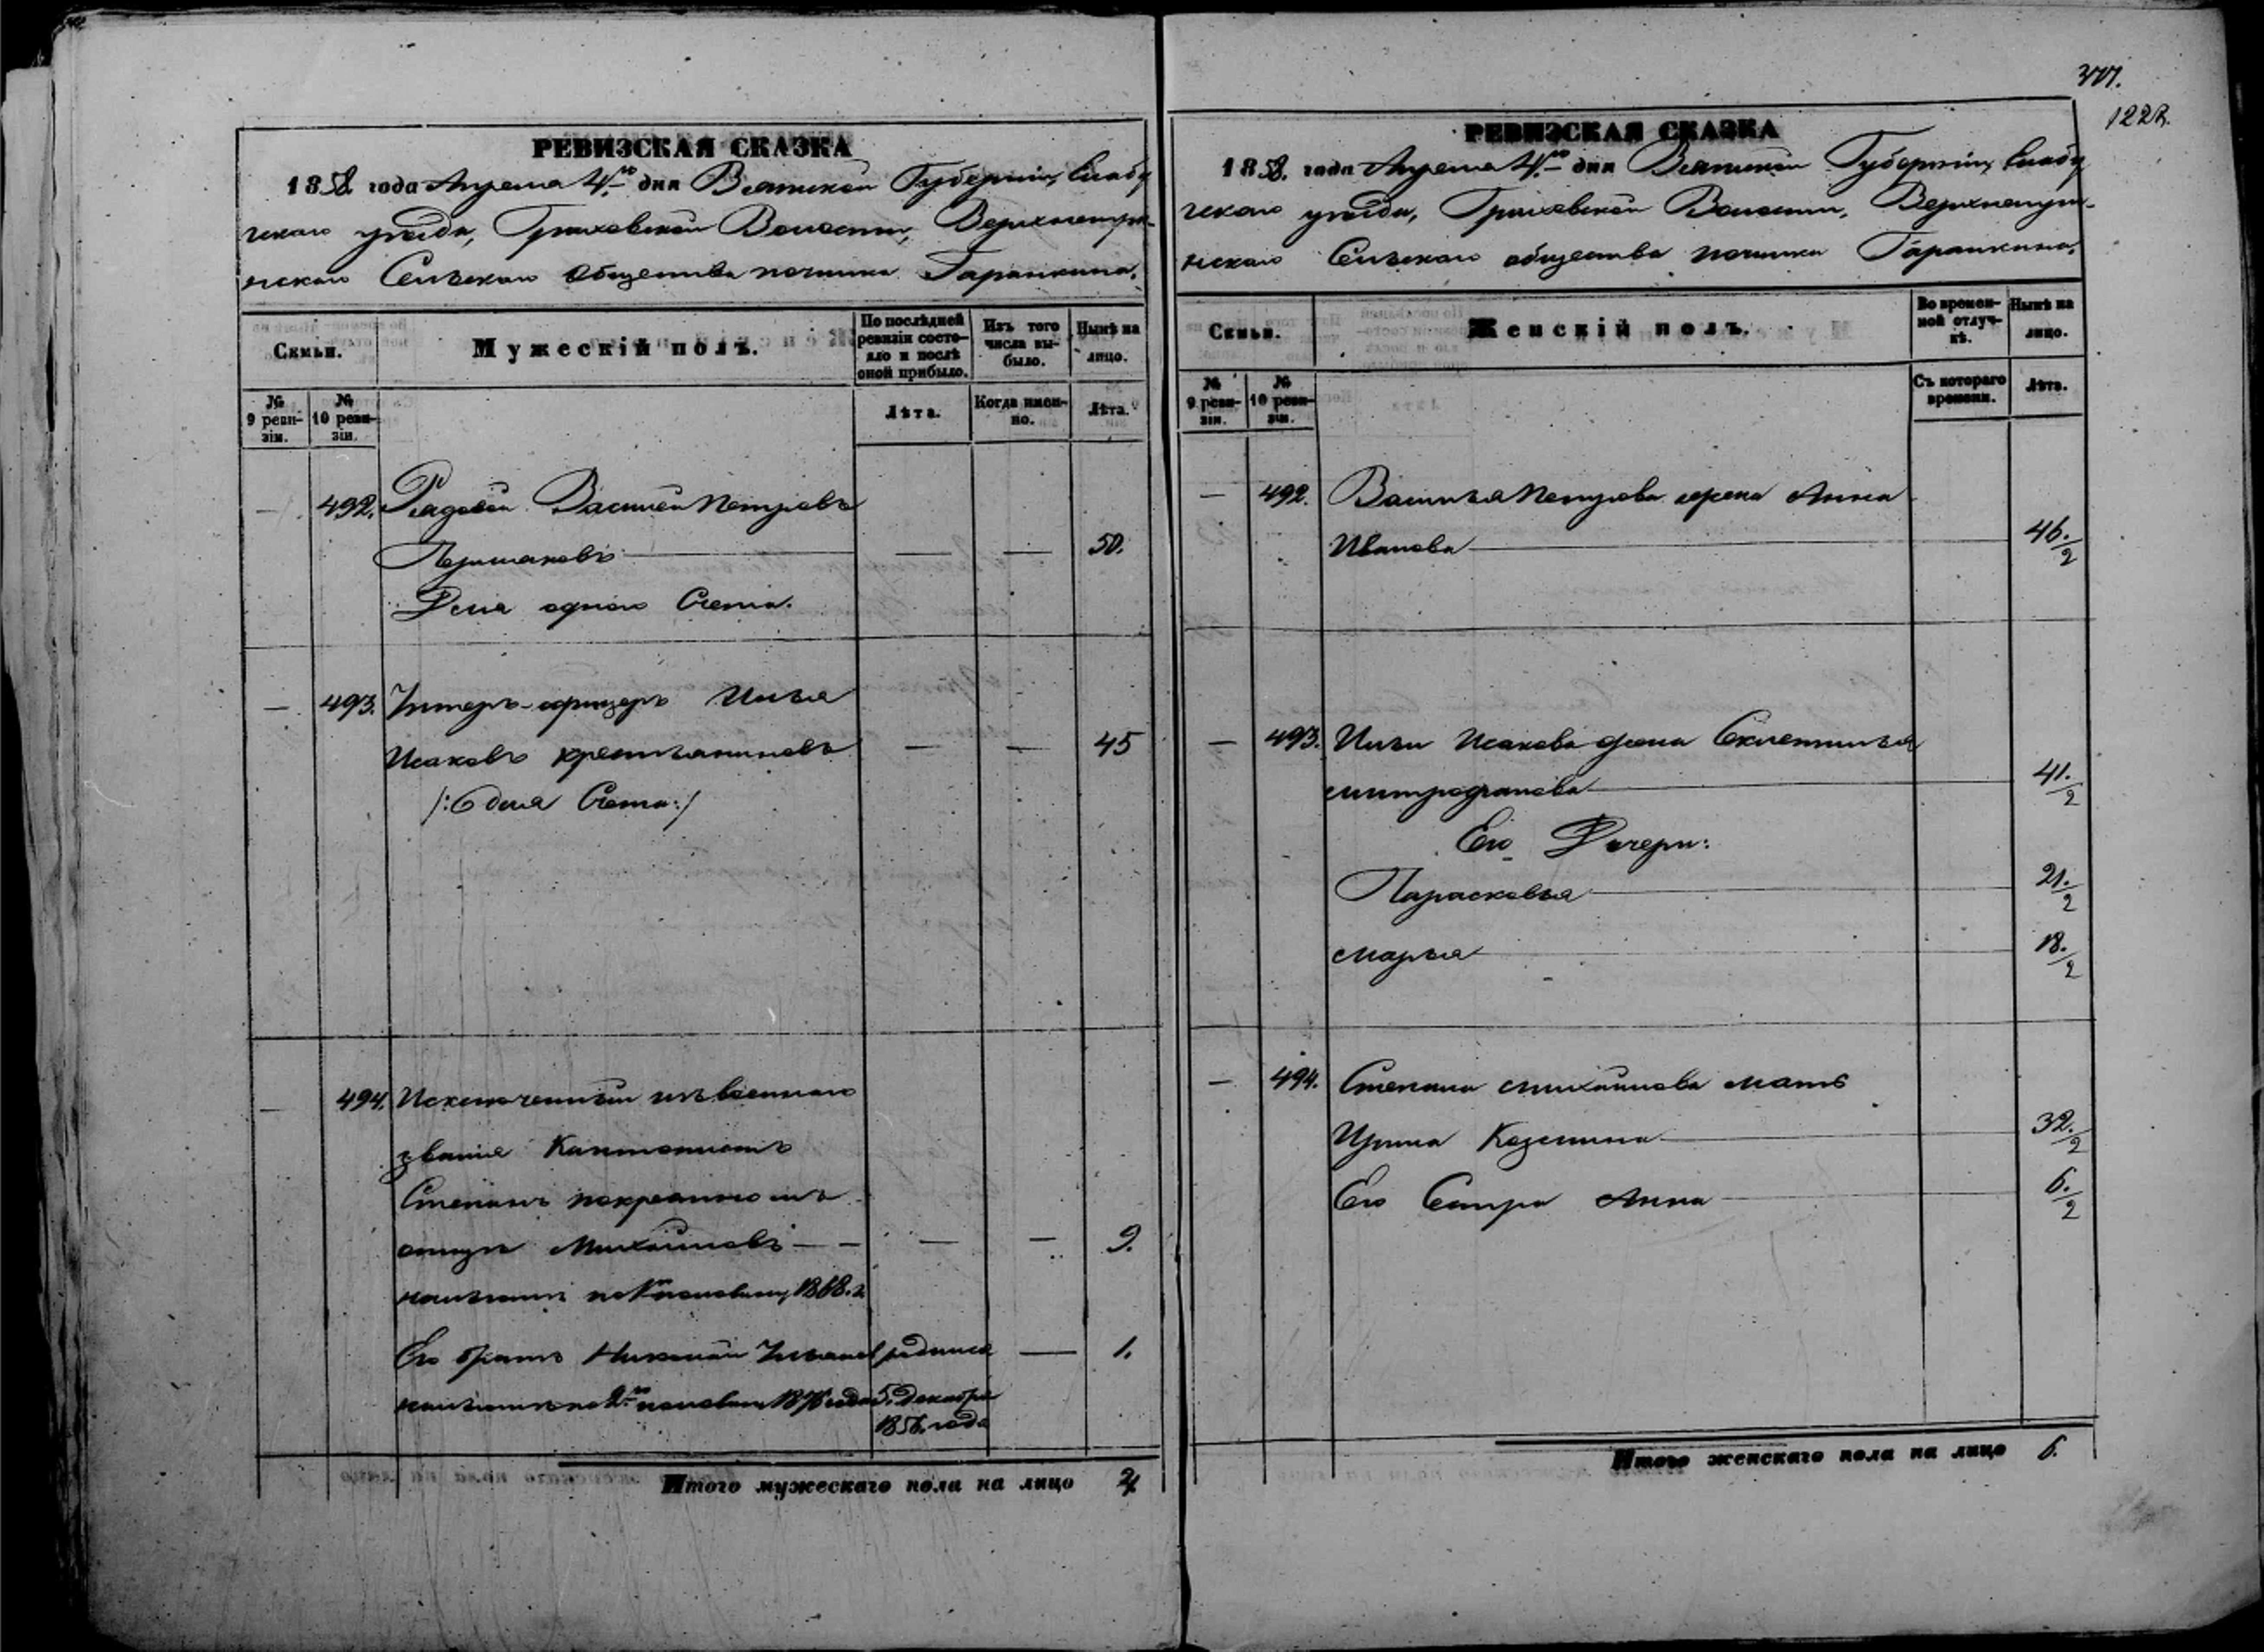 377.
122 
РЕВИЗСКАЯ СКАЗКА
1858. года Апреля 4го дня Вятской Губерніи, Елабу
жскаго уѣзда, Граховской Волости,
Сельскаго Общества починка Гаранкина.
Семьи.
Мужескій полъ.
По послѣдней ревизіи состояло и послѣ оной прибыло.
Изъ того числа выбыло.
Нынѣ на лицо.
№ 9 ревизіи.
№ 10 ревизіи.
Лѣта.
Когда именно.
Лѣта.
— 492. Рядовой Василей Петровъ
— — 50.
Дома одного Счета.
— 493. Унтеръ-офицеръ Илья
Исаковъ крестьяниновъ — — 45
/: Счета:/
— 494. Исключенный изъ военнаго
званія Кантонистъ
Степанъ по крестному
отцу Михайловъ — — — — 9.
по 1ю половину 1868. г.
Его братъ Николай родился — 1.
по 2ю половину года 5. Декабря
года
Итого мужескаго пола на лицо 4
РЕВИЗСКАЯ СКАЗКА
1858. года Апреля 4го дня Вятской Губерніи, Елабу
жскаго уѣзда, Граховской Волости,
Сельскаго общества починка Гаранкина.
Семьи.
Женскій полъ.
Во временной отлучкѣ.
Нынѣ на лицо.
№ 9 ревизіи.
№ 10 ревизіи.
Съ котораго времени.
Лѣта.
— 492. Василья Петрова жена Анна
Иванова 46./2
— 493. Ильи Исакова жена
Митрофанова 41./2
Его Дочери:
Парасковья 21./2
Марья 18./2
— 494. Степана Михайлова мать
Ирина Козмина 32./2
Его Сестра Анна 6./2
Итого женскаго пола на лицо 6.